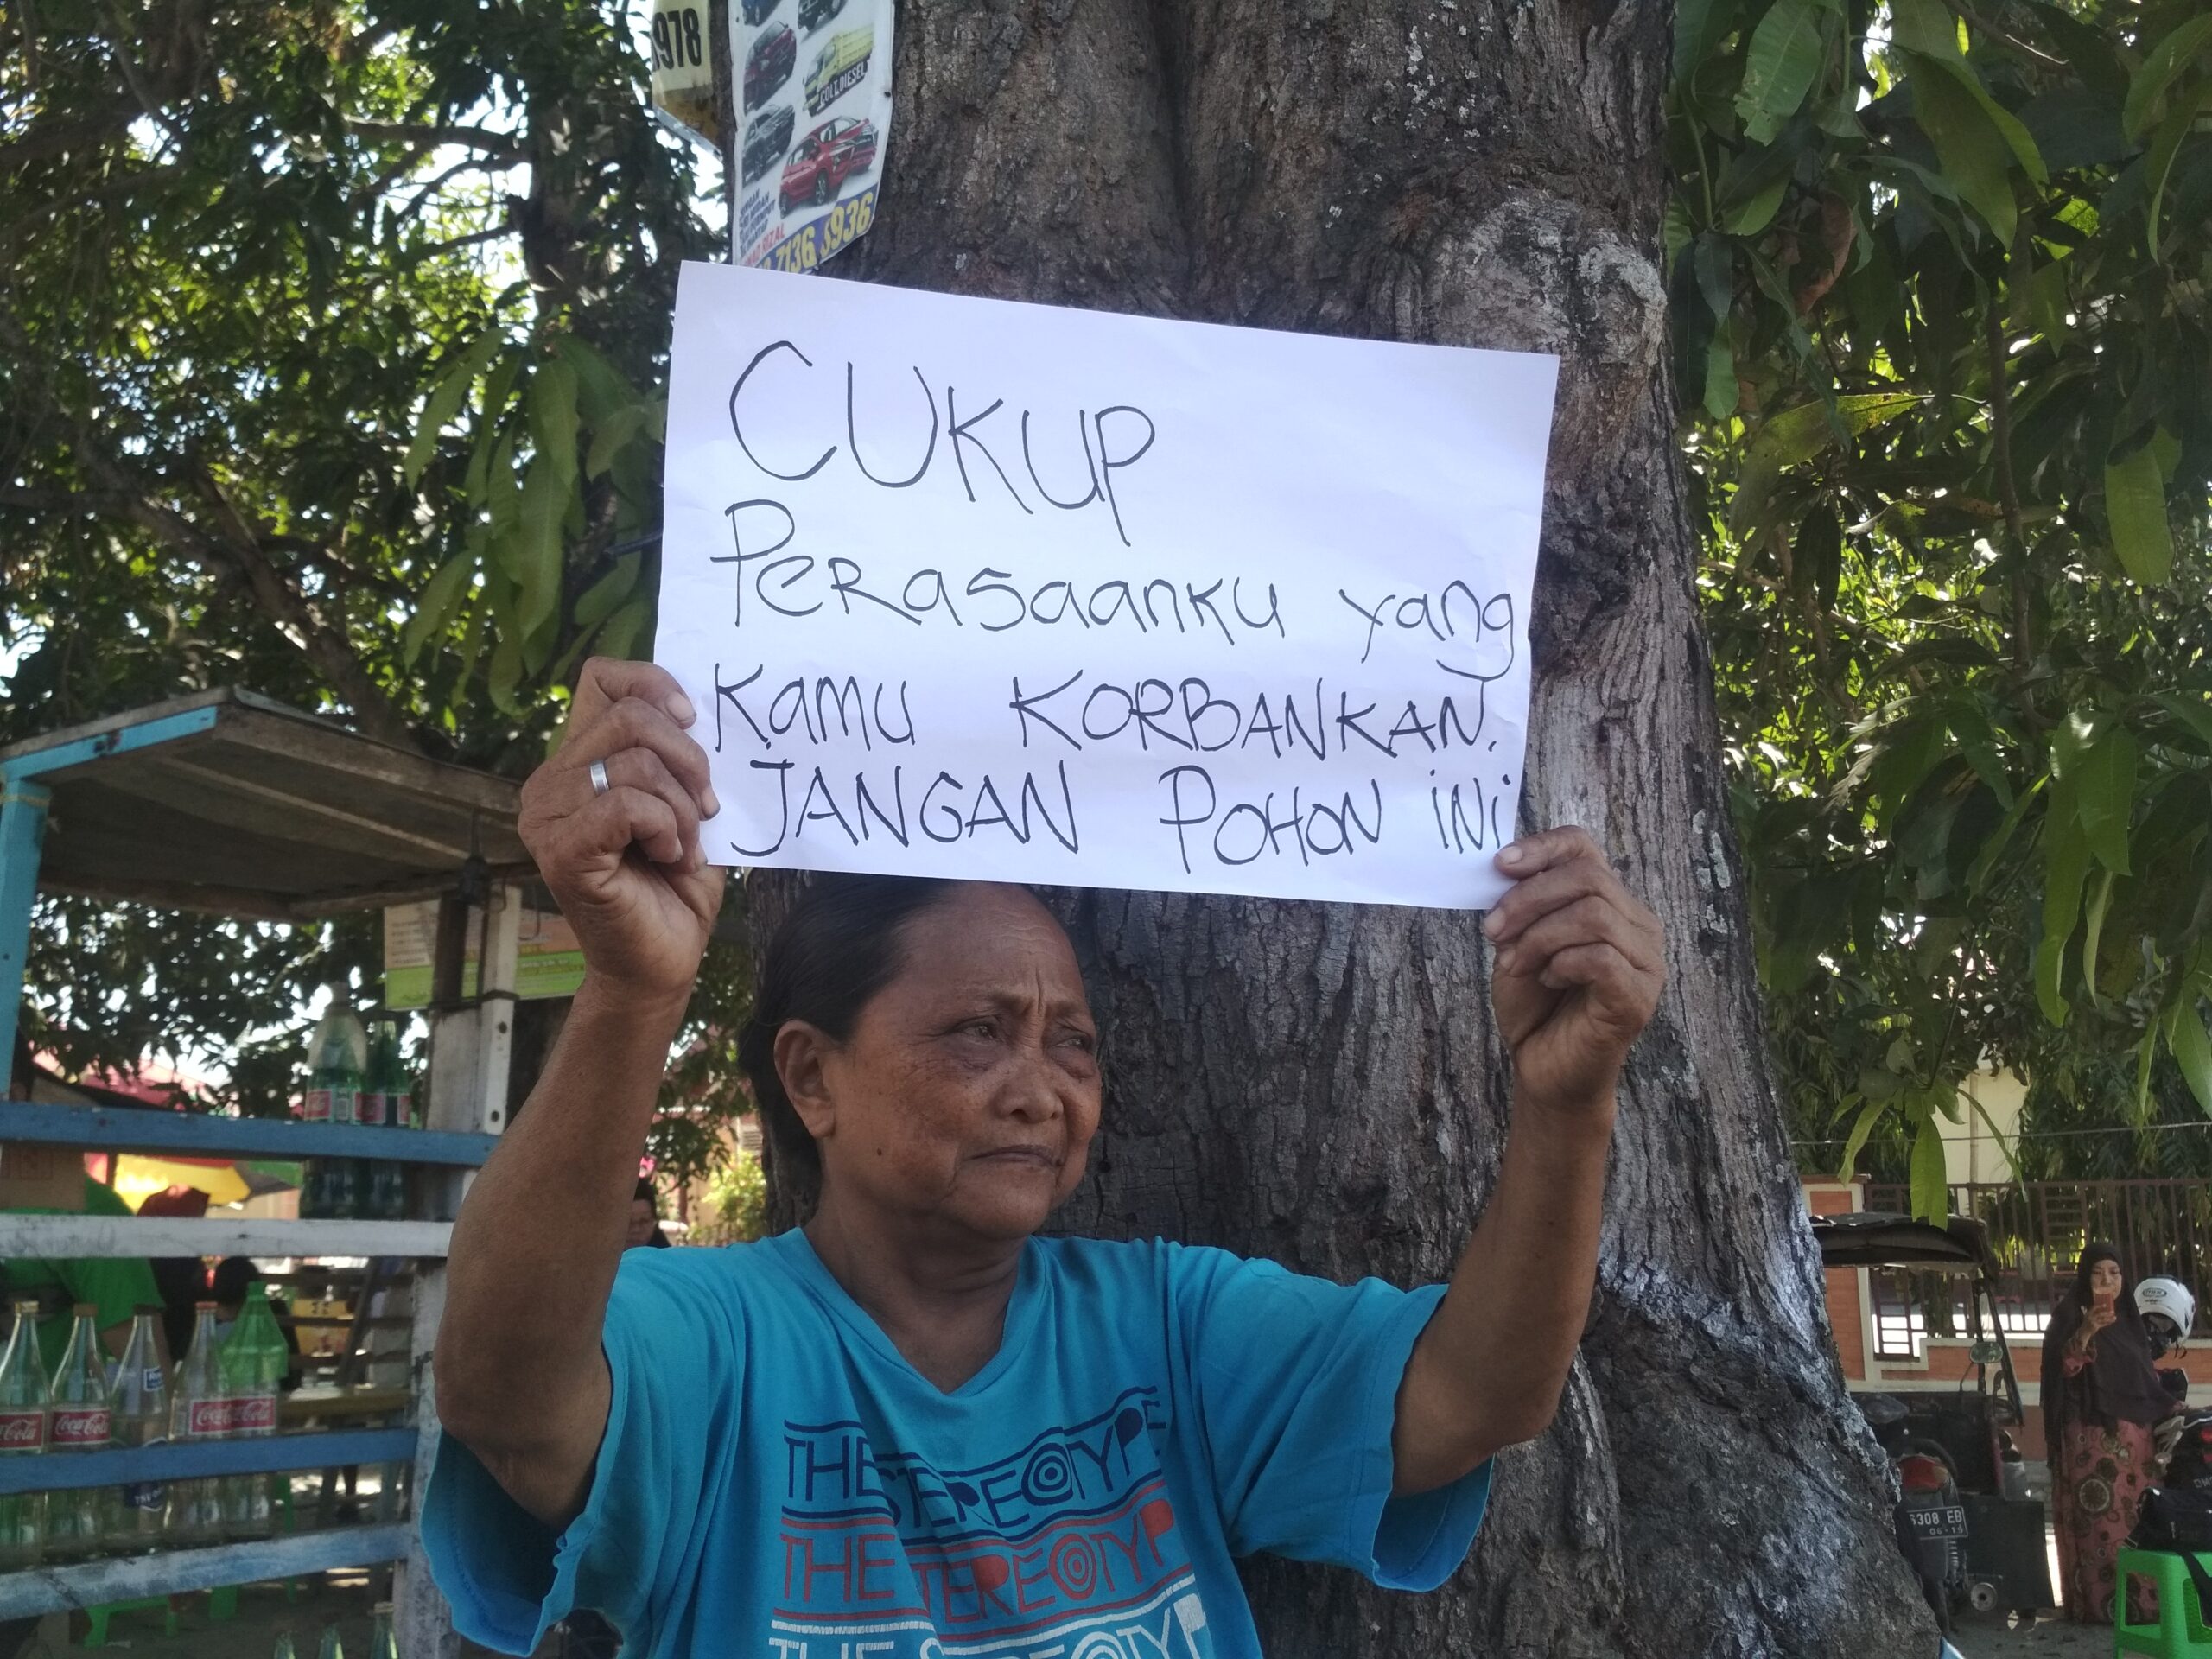 978
COLT DIESEL
7136 8936
CUKUP
Perasaanku yang
Kamu KORBANKAN.
JANGAN POHON iNi
Coca-Cola
Coca-Cola
Coca-Cola
THE STEREOTYPE
THE STEREOTYP
THE STEREOTYP
6308 EB